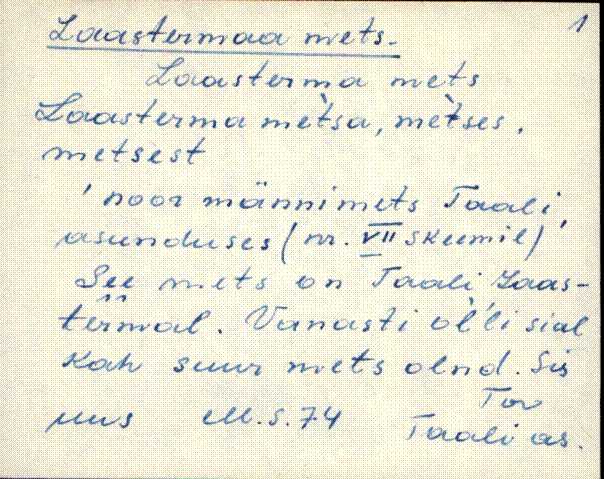 1
Laastermaa mets.
Laasterma mets
Laasterma metsa, metses,
metsest
' noor männimets Taali
asunduses (nr. VII skeemil)
See mets on Taali Laas-
termal. Vanasti ol'li sial
kah suur mets olnd. Sis
Tor
uus M.S.74 Taali as.